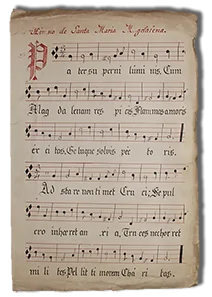 Hẏmno de Santa Maria Magdalena.
Pa ter su perni lumi nis, Cum
Mag da lenam res pi cis Flammas amoris
ex ci tas, Ge luque solvis pec to ris.
Ad sta re non ti met Cru ci; Se pul
cro inhæret an xi a, Truces nec horret
mi li tes Pel lit ti morem Cha ri tas.